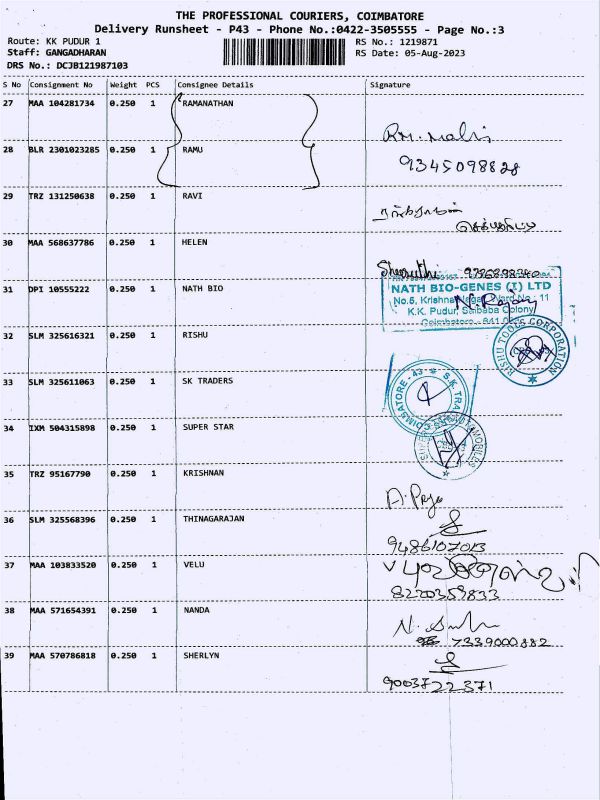 THE PROFESSIONAL COURIERS, COIMBATORE
Delivery Runsheet - P43 - Phone No.:0422-3505555 - Page No.:3
Route: KK PUDUR 1 RS No.: 1219871
Staff: GANGADHARAN RS Date: 05-Aug-2023
DRS No.: DCJB121987103
S No Consignment No Weight PCS Consignee Details Signature
27 MAA 104281734 0.250 1 RAMANATHAN
28 BLR 2301023285 0.250 1 RAMU
9345098828
29 TRZ 131250638 0.250 1 RAVI
30 MAA 568637786 0.250 1 HELEN
31 DPI 10555222 0.250 1 NATH BIO
NATH BIO-GENES (I) LTD
No.5, Krishna Nagar, Ward No : 11
K.K. Pudur, Saibaba Colony
Coimbatore - 641
32 SLM 325616321 0.250 1 RISHU
RISHU TOOLS CORPORATION
33 SLM 325611063 0.250 1 SK TRADERS
34 IXM 504315898 0.250 1 SUPER STAR
35 TRZ 95167790 0.250 1 KRISHNAN
36 SLM 325568396 0.250 1 THINAGARAJAN
9486107013
37 MAA 103833520 0.250 1 VELU
8220359833
38 MAA 571654391 0.250 1 NANDA
7339000882
39 MAA 570786818 0.250 1 SHERLYN
9003722371